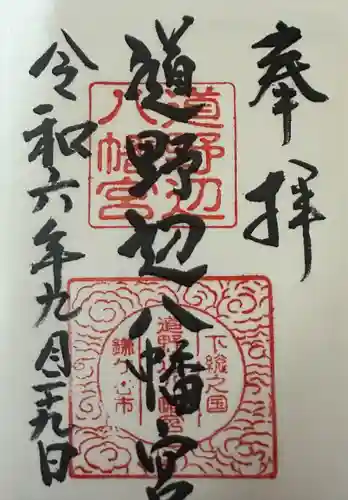 奉拝
道野辺八幡宮
令和六年九月二十九日
道野辺
八幡宮
下総之国
道野辺
八幡宮
鎌ヶ谷市